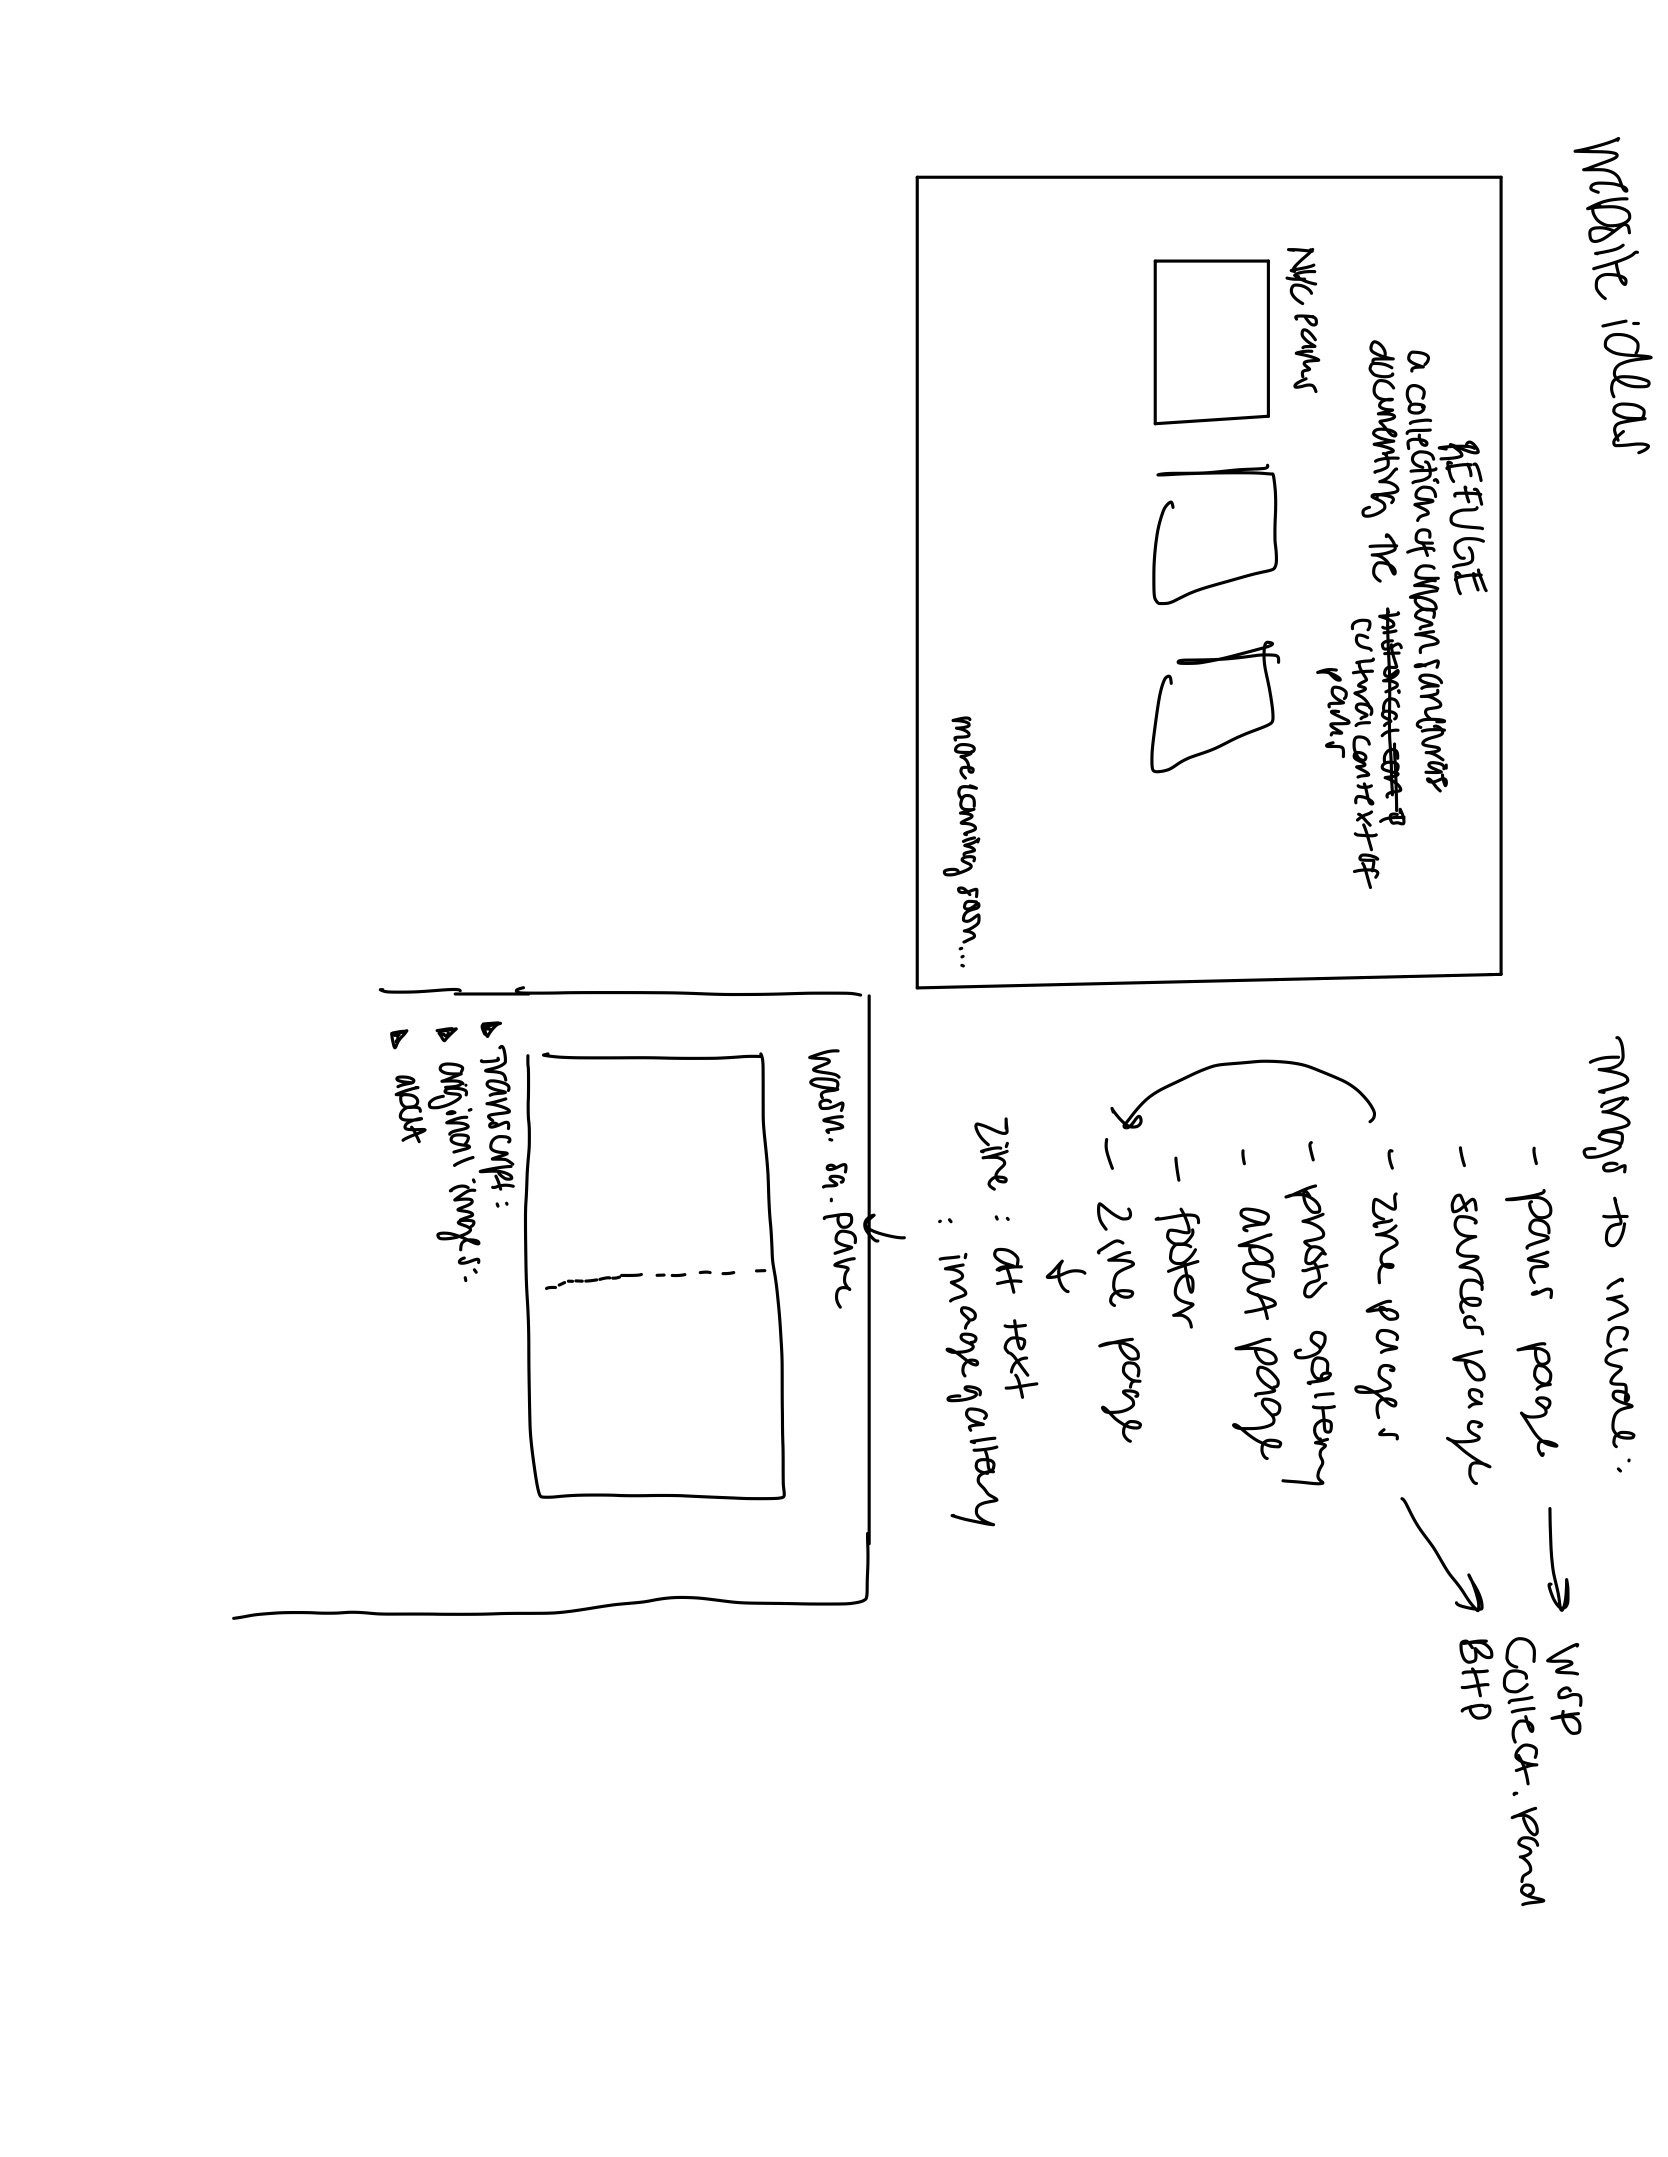 Website ideas
REFUGE
a collection of urban sanctuaries
documenting the historical cont of
cultural context of
parks
NYC parks
more coming soon...
Things to include:
- parks page
- sources page
- zine pages
- photo gallery
- about page
- footer
- zine page
WSP
Collect. pond
BHP
zine: alt text
: image gallery
Wash. sq. park
Transcript:
original imgs:
about